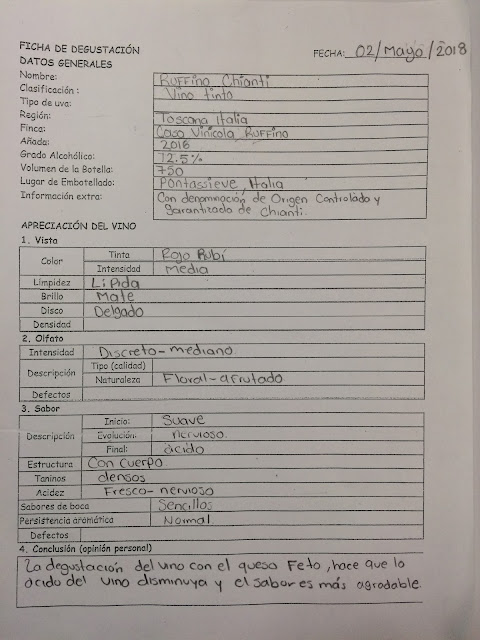 FICHA DE DEGUSTACIÓN
FECHA: 02/Mayo/2018
DATOS GENERALES
Nombre: Ruffino Chianti
Clasificación : Vino tinto
Tipo de uva:
Región: Toscana Italia
Finca: Casa Vinícola Ruffino
Añada: 2016
Grado Alcohólico: 12.5%
Volumen de la Botella: 750
Lugar de Embotellado: Pontassieve, Italia
Información extra: Con denominación de Origen Controlado y
garantizada de Chianti.
APRECIACIÓN DEL VINO
1. Vista
Color Tinta Rojo Rubí
Intensidad Media
Limpidez Lípida
Brillo Mate
Disco Delgado
Densidad
2. Olfato
Intensidad Discreto-mediano
Descripción Tipo (calidad)
Naturaleza Floral-afrutado
Defectos
3. Sabor
Descripción Inicio: Suave
Evolución: nervioso.
Final: ácido
Estructura Con cuerpo
Taninos densos
Acidez Fresco-nervioso
Sabores de boca Sencillos
Persistencia aromática Normal
Defectos
4. Conclusión (opinión personal)
La degustación del vino con el queso Feta, hace que lo
ácido del vino disminuya y el sabor es más agradable.